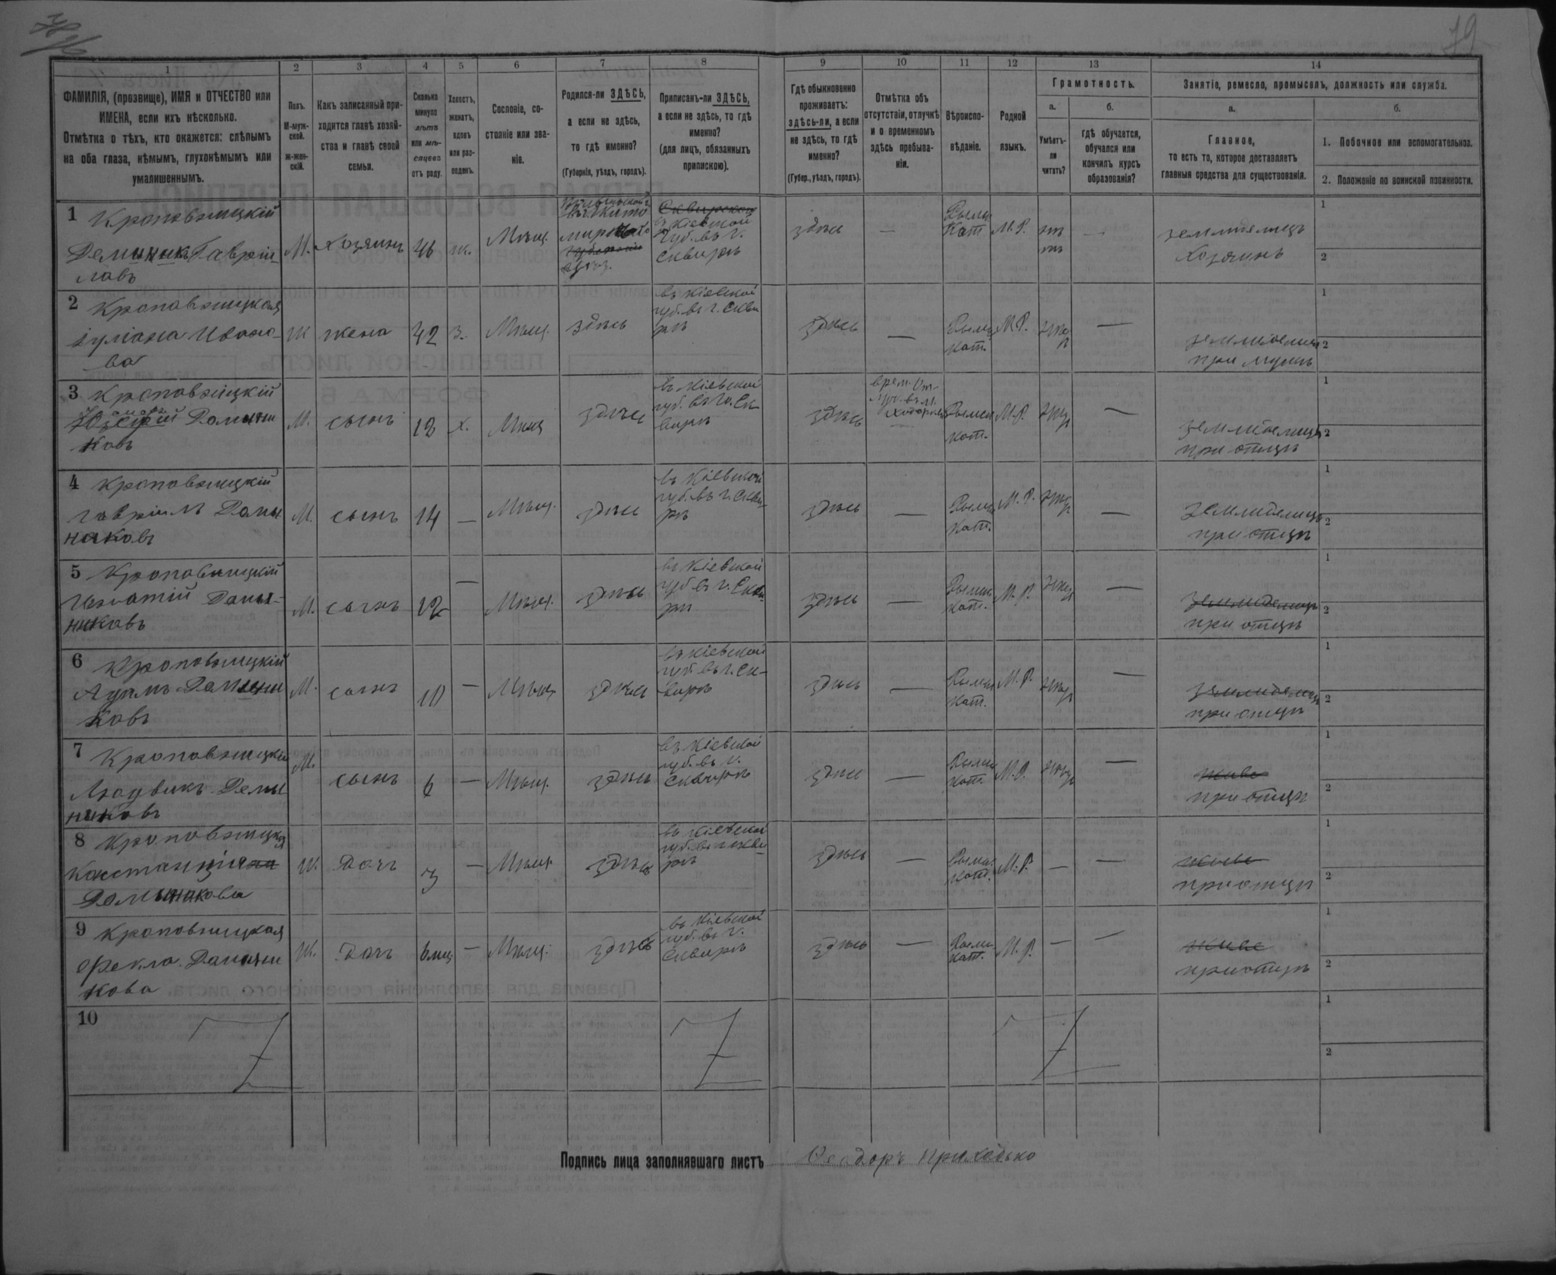 79
1 2 3 4 5 6 7 8 9 10 11 12 13 14
ФАМИЛІЯ, (прозвище), ИМЯ и ОТЧЕСТВО или
ИМЕНА, если ихъ нѣсколько.
Отмѣтка о тѣхъ, кто окажется: слѣпымъ
на оба глаза, нѣмымъ, глухонѣмымъ или
умалишеннымъ.
Полъ.
М-муж-
ской.
ж-жен-
скій.
Какъ записанный при-
ходится главѣ хозяй-
ства и главѣ своей
семьи.
Сколько
минуло
лѣтъ
или мѣ-
сяцевъ
отъ роду.
Холостъ,
женатъ,
вдовъ
или раз-
веденъ.
Сословіе, со-
стояніе или зва-
ніе.
Родился-ли ЗДѢСЬ,
а если не здѣсь,
то гдѣ именно?
(Губернія, уѣздъ, городъ).
Приписанъ-ли ЗДѢСЬ,
а если не здѣсь, то гдѣ
именно?
(для лицъ, обязанныхъ
припискою).
Гдѣ обыкновенно
проживаетъ:
здѣсь-ли, а если
не здѣсь, то гдѣ
именно?
(Губер., уѣздъ, городъ).
Отмѣтка объ
отсутствіи, отлучкѣ
и о временномъ
здѣсь пребыва-
ніи.
Вѣроиспо-
вѣданіе.
Родной
языкъ.
Грамотность.
а.
Умѣетъ-
ли
читать?
б.
Гдѣ обучается,
обучался или
кончилъ курсъ
образованія?
Занятіе, ремесло, промыселъ, должность или служба.
а.
Главное,
то есть то, которое доставляетъ
главныя средства для существованія.
б.
1. Побочное или вспомогательное.
2. Положеніе по воинской повинности.
1 Кроповницкій
Доминикъ Гаврии-
ловъ
М. Хозяинъ 46 ж. Мѣщ.
въ Кіевской
губ. въ г.
Сквирѣ
здѣсь — Римс. Кат. М.Р. —
земледѣлецъ
Хозяинъ
2 Кроповницкая
Іуліана Ивано-
ва
Ж жена 42 з. Мѣщ. здѣсь
въ Кіевской
губ. въ г. Скви
рѣ
здѣсь — Римс. Кат. М.Р. —
земледѣлица
при мужѣ
3 Кроповницкій
Доминиковъ
М. сынъ 18 х. Мѣщ здѣсь
въ Кіевской
губ. въ г. Ск-
вирѣ
здѣсь Римск. кат. М.Р. —
земледѣлецъ
при отцѣ
4 Кроповницкій
Гавріилъ Доми
никовъ
М. сынъ 14 — Мѣщ. здѣсь
въ Кіевской
губ. въ г. Скви-
рѣ
здѣсь — Римс. Кат. М.Р. —
земледѣлецъ
при отцѣ
5 Кроповницкій
Игнатій Доми-
никовъ
М. сынъ 12 — Мѣщ. здѣсь
въ Кіевской
губ. въ г. Скви-
рѣ
здѣсь — Римс. кат. М.Р. —
земледѣлецъ
при отцѣ
6 Кроповницкій
Адамъ Домини
ковъ
М. сынъ 10 — Мѣщ здѣсь
въ Кіевской
губ. въ г. Ск-
вирѣ
здѣсь — Римс. Кат. М.Р. —
земледѣлецъ
при отцѣ
7 Кроповницкій
Людвикъ Доми
никовъ
М. сынъ 6 — Мѣщ. здѣсь
въ Кіевской
губ. въ г.
Сквирѣ
здѣсь — Римс. Кат. М.Р. —
при отцѣ
8 Кроповницкая
Констанція
Доминикова
Ж. Дочь 3 — Мѣщ. здѣсь
въ Кіевской
губ. въ г. Скви-
рѣ
здѣсь — Римс. Кат. М.Р. — —
при отцѣ
9 Кроповницкая
Фекла Домини
кова
Ж. Дочь 6 мц — Мѣщ. здѣсь
въ Кіевской
губ. въ г.
Сквирѣ
здѣсь — Римс. Кат. М.Р. — —
при отцѣ
10
Подпись лица заполнявшаго листъ Феодоръ Приходько